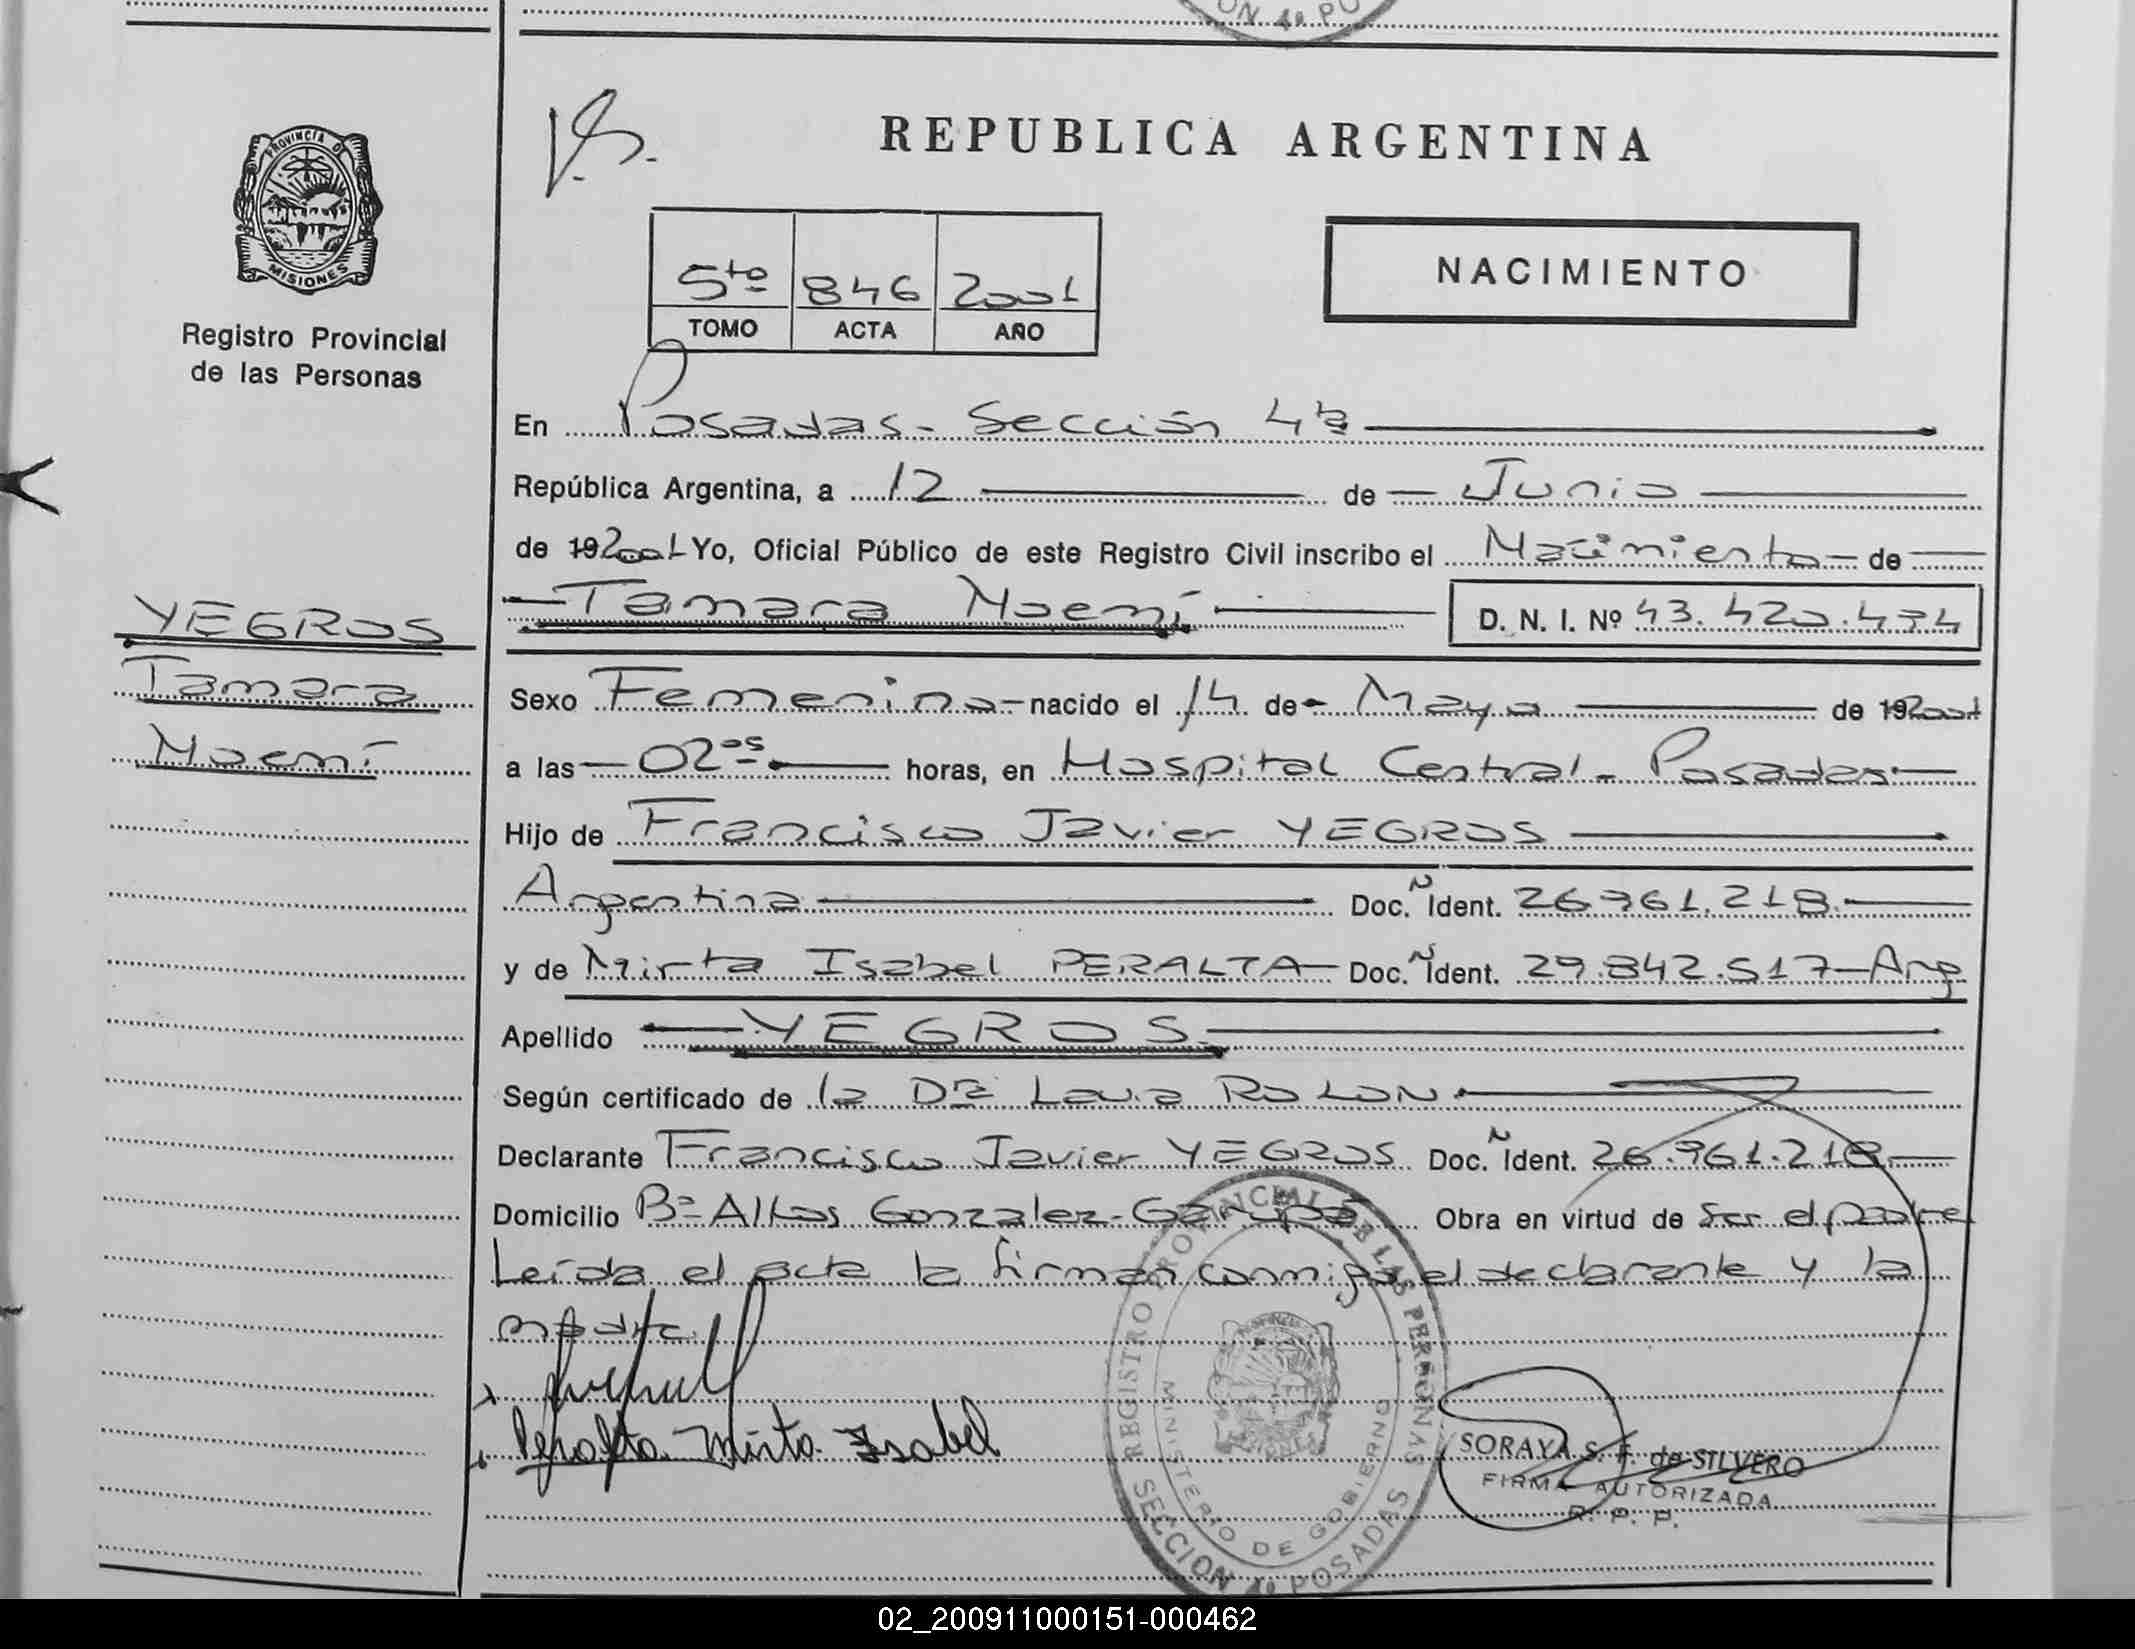 CION 4º PO
PROVINCIA D
MISIONES
Registro Provincial
de las Personas
REPUBLICA ARGENTINA
5to 846 2001
TOMO ACTA AÑO
NACIMIENTO
En Posadas - Sección 4ta
República Argentina, a 12 de Junio
de 192001 Yo, Oficial Público de este Registro Civil inscribo el Nacimiento de
Tamara Noemí D. N. I. Nº 43.420.474
YEGROS
Tamara
Noemí
Sexo Femenino nacido el 14 de Mayo de 192001
a las 02 05 horas, en Hospital Central - Posadas
Hijo de Francisco Javier YEGROS
Argentina Doc. N Ident. 26.961.218
y de Mirta Isabel PERALTA Doc. N Ident. 29.842.517 - Arg
Apellido YEGROS
Según certificado de la Dra ROLON
Declarante Francisco Javier YEGROS Doc. N Ident. 26.961.218
Domicilio Bº Altos Gonzalez - Garupá Obra en virtud de Ser el padre
Leída el acta la firman conmigo el declarante y la
madre.
Peralta Mirta Isabel
REGISTRO PROVINCIAL DE LAS PERSONAS
MINISTERIO DE GOBIERNO
SECCION 4º POSADAS
SORAYA S. F. de SILVERO
FIRMA AUTORIZADA
R. P. P.
02_200911000151-000462